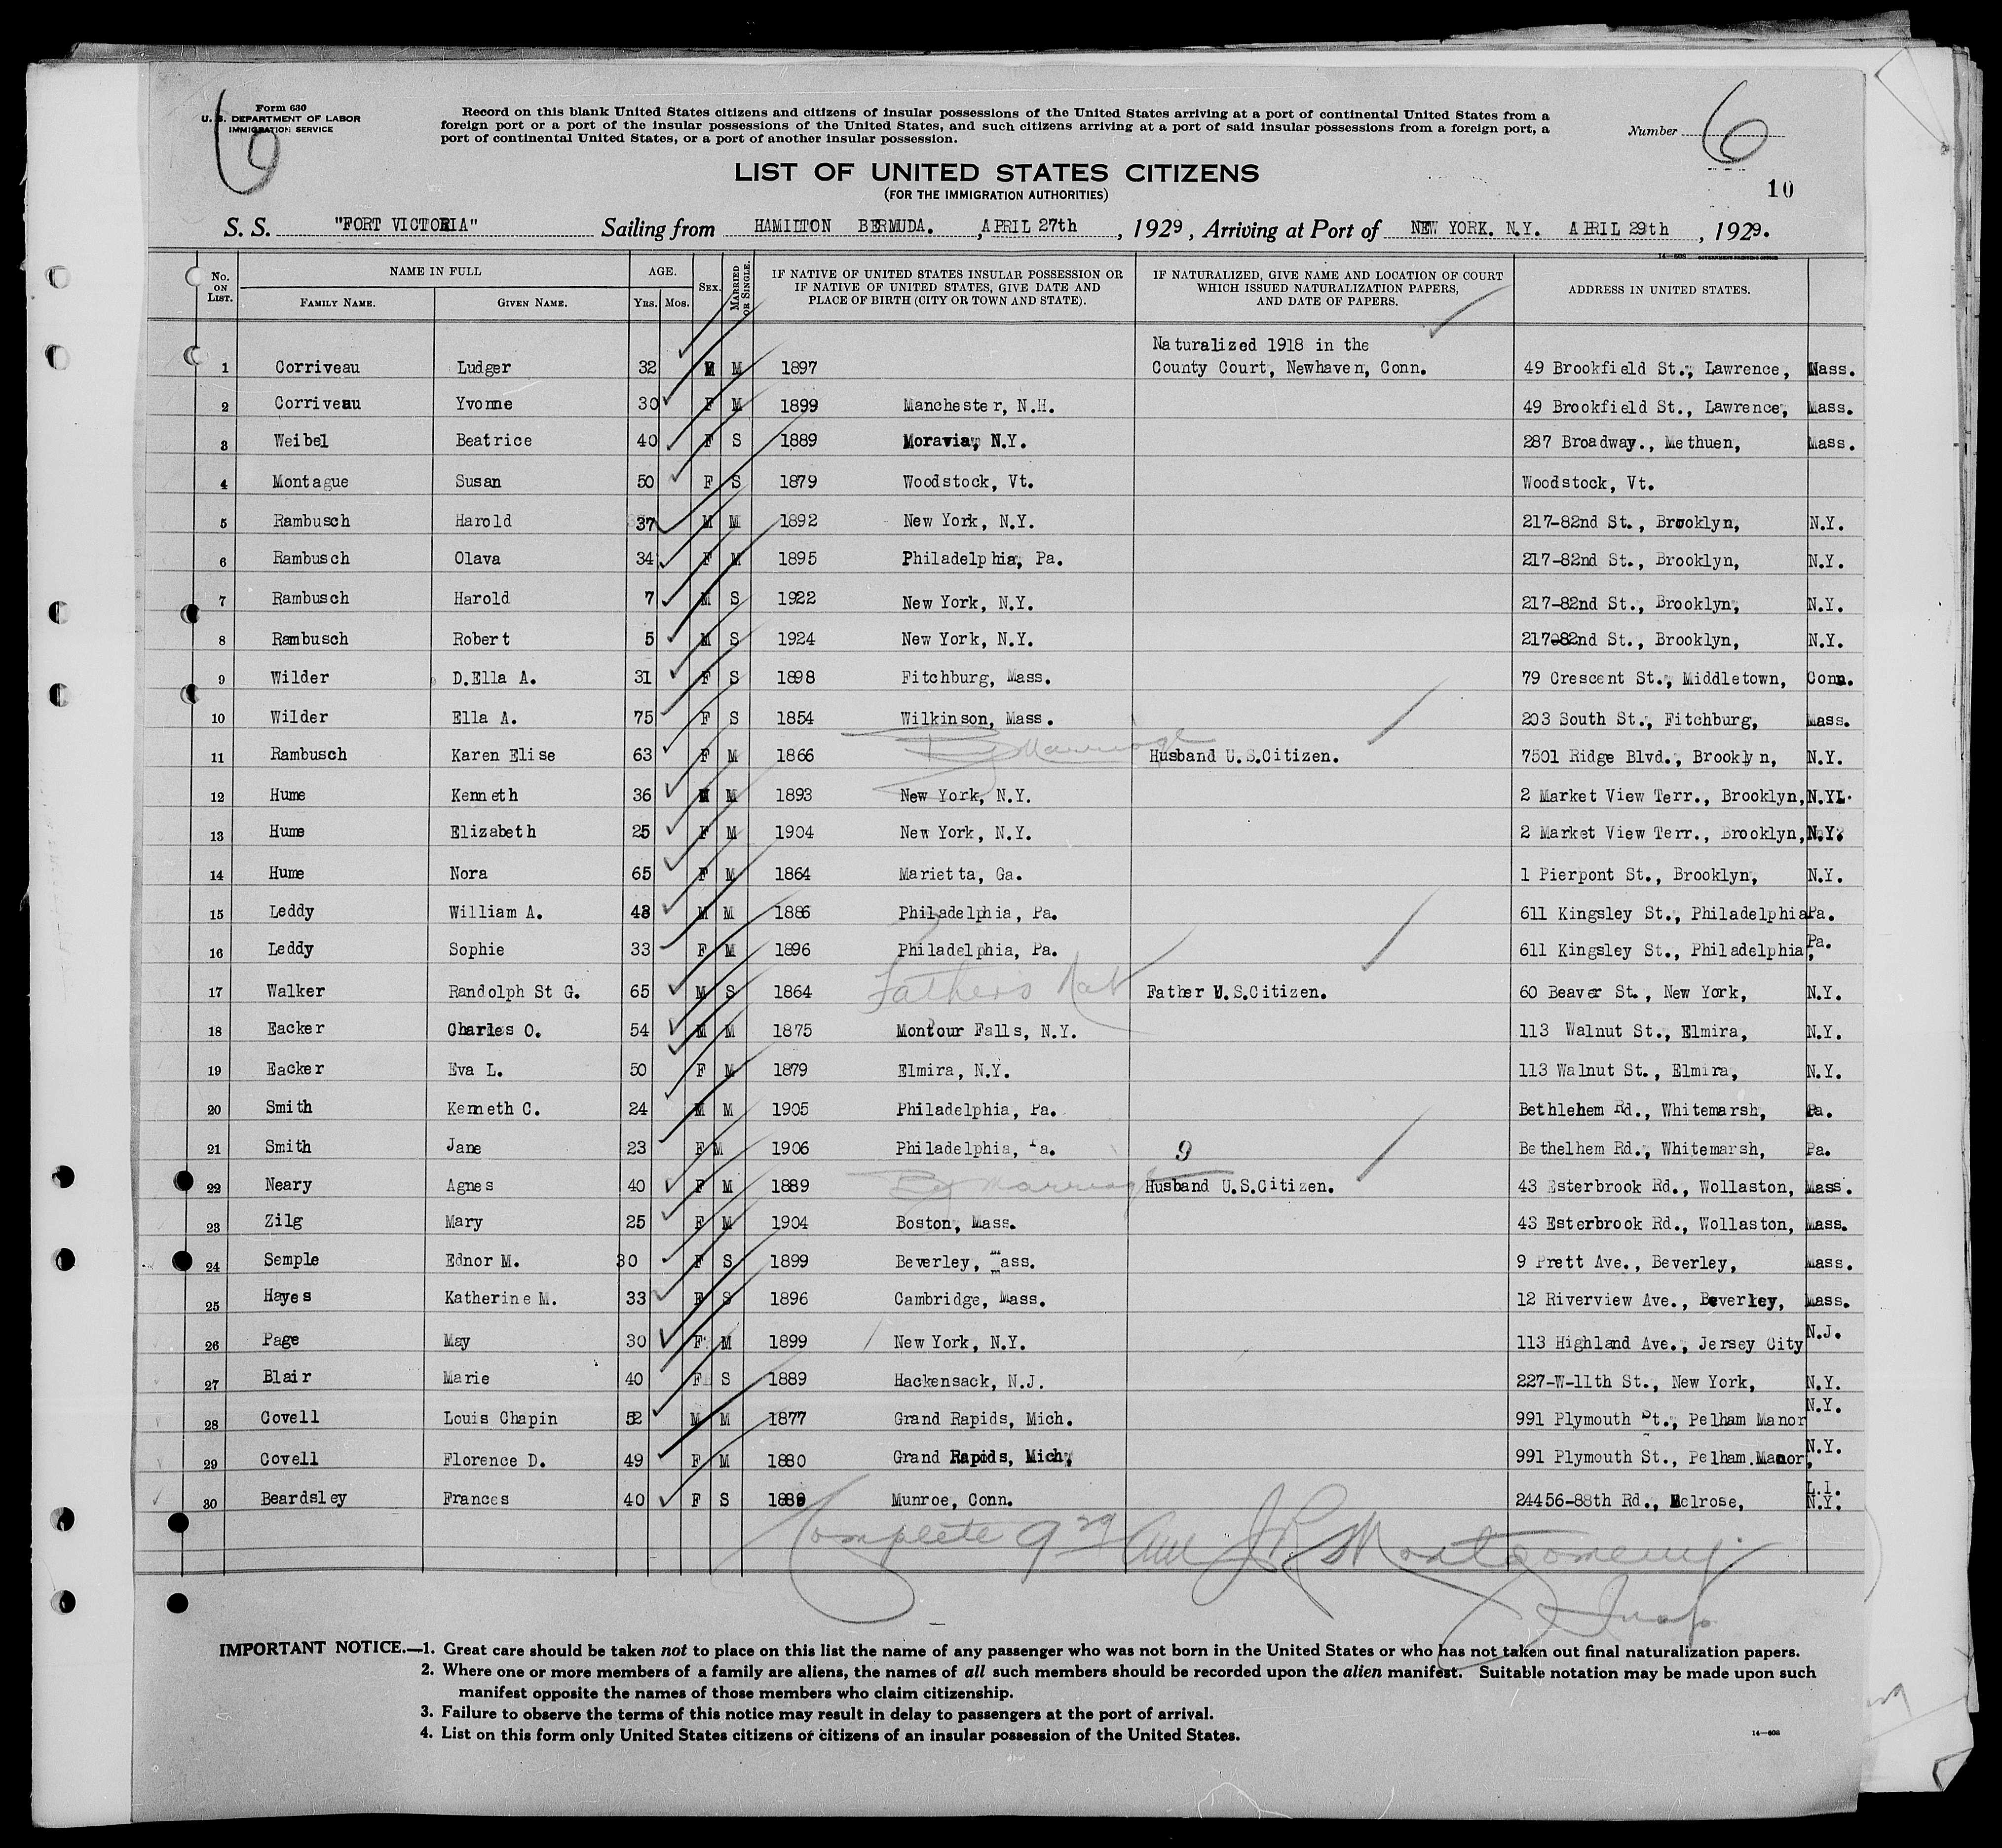 Form 630
U. S. DEPARTMENT OF LABOR
IMMIGRATION SERVICE
6
Record on this blank United States citizens and citizens of insular possessions of the United States arriving at a port of continental United States from a
foreign port or a port of the insular possessions of the United States, and such citizens arriving at a port of said insular possessions from a foreign port, a
port of continental United States, or a port of another insular possession.
Number 6
LIST OF UNITED STATES CITIZENS
(FOR THE IMMIGRATION AUTHORITIES)
10
S. S. "FORT VICTORIA" Sailing from HAMILTON BERMUDA. , APRIL 27th , 1929, Arriving at Port of NEW YORK. N.Y. APRIL 29th , 1929.
14—608 GOVERNMENT PRINTING OFFICE
No. ON LIST. NAME IN FULL FAMILY NAME. GIVEN NAME. AGE. YRS. MOS. SEX. MARRIED OR SINGLE. IF NATIVE OF UNITED STATES INSULAR POSSESSION OR IF NATIVE OF UNITED STATES, GIVE DATE AND PLACE OF BIRTH (CITY OR TOWN AND STATE). IF NATURALIZED, GIVE NAME AND LOCATION OF COURT WHICH ISSUED NATURALIZATION PAPERS, AND DATE OF PAPERS. ADDRESS IN UNITED STATES.
Naturalized 1918 in the
1 Corriveau Ludger 32 M M 1897 County Court, Newhaven, Conn. 49 Brookfield St., Lawrence, Mass.
2 Corriveau Yvonne 30 F M 1899 Manchester, N.H. 49 Brookfield St., Lawrence, Mass.
3 Weibel Beatrice 40 F S 1889 Moravia, N.Y. 287 Broadway., Methuen, Mass.
4 Montague Susan 50 F S 1879 Woodstock, Vt. Woodstock, Vt.
5 Rambusch Harold 37 M M 1892 New York, N.Y. 217-82nd St., Brooklyn, N.Y.
6 Rambusch Olava 34 F M 1895 Philadelphia, Pa. 217-82nd St., Brooklyn, N.Y.
7 Rambusch Harold 7 M S 1922 New York, N.Y. 217-82nd St., Brooklyn, N.Y.
8 Rambusch Robert 5 M S 1924 New York, N.Y. 217-82nd St., Brooklyn, N.Y.
9 Wilder D.Ella A. 31 F S 1898 Fitchburg, Mass. 79 Crescent St., Middletown, Conn.
10 Wilder Ella A. 75 F S 1854 Wilkinson, Mass. 203 South St., Fitchburg, Mass.
By Marriage
11 Rambusch Karen Elise 63 F M 1866 Husband U.S.Citizen. 7501 Ridge Blvd., Brooklyn, N.Y.
12 Hume Kenneth 36 M M 1893 New York, N.Y. 2 Market View Terr., Brooklyn, N.Y.
13 Hume Elizabeth 25 F M 1904 New York, N.Y. 2 Market View Terr., Brooklyn, N.Y.
14 Hume Nora 65 F M 1864 Marietta, Ga. 1 Pierpont St., Brooklyn, N.Y.
15 Leddy William A. 43 M M 1886 Philadelphia, Pa. 611 Kingsley St., Philadelphia Pa.
16 Leddy Sophie 33 F M 1896 Philadelphia, Pa. 611 Kingsley St., Philadelphia, Pa.
17 Walker Randolph St G. 65 M S 1864 Fathers Nat Father U.S.Citizen. 60 Beaver St., New York, N.Y.
18 Eacker Charles O. 54 M M 1875 Montour Falls, N.Y. 113 Walnut St., Elmira, N.Y.
19 Eacker Eva L. 50 F M 1879 Elmira, N.Y. 113 Walnut St., Elmira, N.Y.
20 Smith Kenneth C. 24 M M 1905 Philadelphia, Pa. Bethlehem Rd., Whitemarsh, Pa.
21 Smith Jane 23 F M 1906 Philadelphia, Pa. 9 Bethelhem Rd., Whitemarsh, Pa.
22 Neary Agnes 40 F M 1889 By Marriage Husband U.S.Citizen. 43 Esterbrook Rd., Wollaston, Mass.
23 Zilg Mary 25 F M 1904 Boston, Mass. 43 Esterbrook Rd., Wollaston, Mass.
24 Semple Ednor M. 30 F S 1899 Beverley, Mass. 9 Prett Ave., Beverley, Mass.
25 Hayes Katherine M. 33 F S 1896 Cambridge, Mass. 12 Riverview Ave., Beverley, Mass.
26 Page May 30 F M 1899 New York, N.Y. 113 Highland Ave., Jersey City N.J.
27 Blair Marie 40 F S 1889 Hackensack, N.J. 227-W-11th St., New York, N.Y.
28 Covell Louis Chapin 52 M M 1877 Grand Rapids, Mich. 991 Plymouth St., Pelham Manor N.Y.
29 Covell Florence D. 49 F M 1880 Grand Rapids, Mich. 991 Plymouth St., Pelham Manor, N.Y.
30 Beardsley Frances 40 F S 1889 Munroe, Conn. 24456-88th Rd., Melrose, L.I. N.Y.
Complete 9 29 AM J R Montgomery
Insp
IMPORTANT NOTICE.—1. Great care should be taken not to place on this list the name of any passenger who was not born in the United States or who has not taken out final naturalization papers.
2. Where one or more members of a family are aliens, the names of all such members should be recorded upon the alien manifest. Suitable notation may be made upon such
manifest opposite the names of those members who claim citizenship.
3. Failure to observe the terms of this notice may result in delay to passengers at the port of arrival.
4. List on this form only United States citizens or citizens of an insular possession of the United States.
14—608